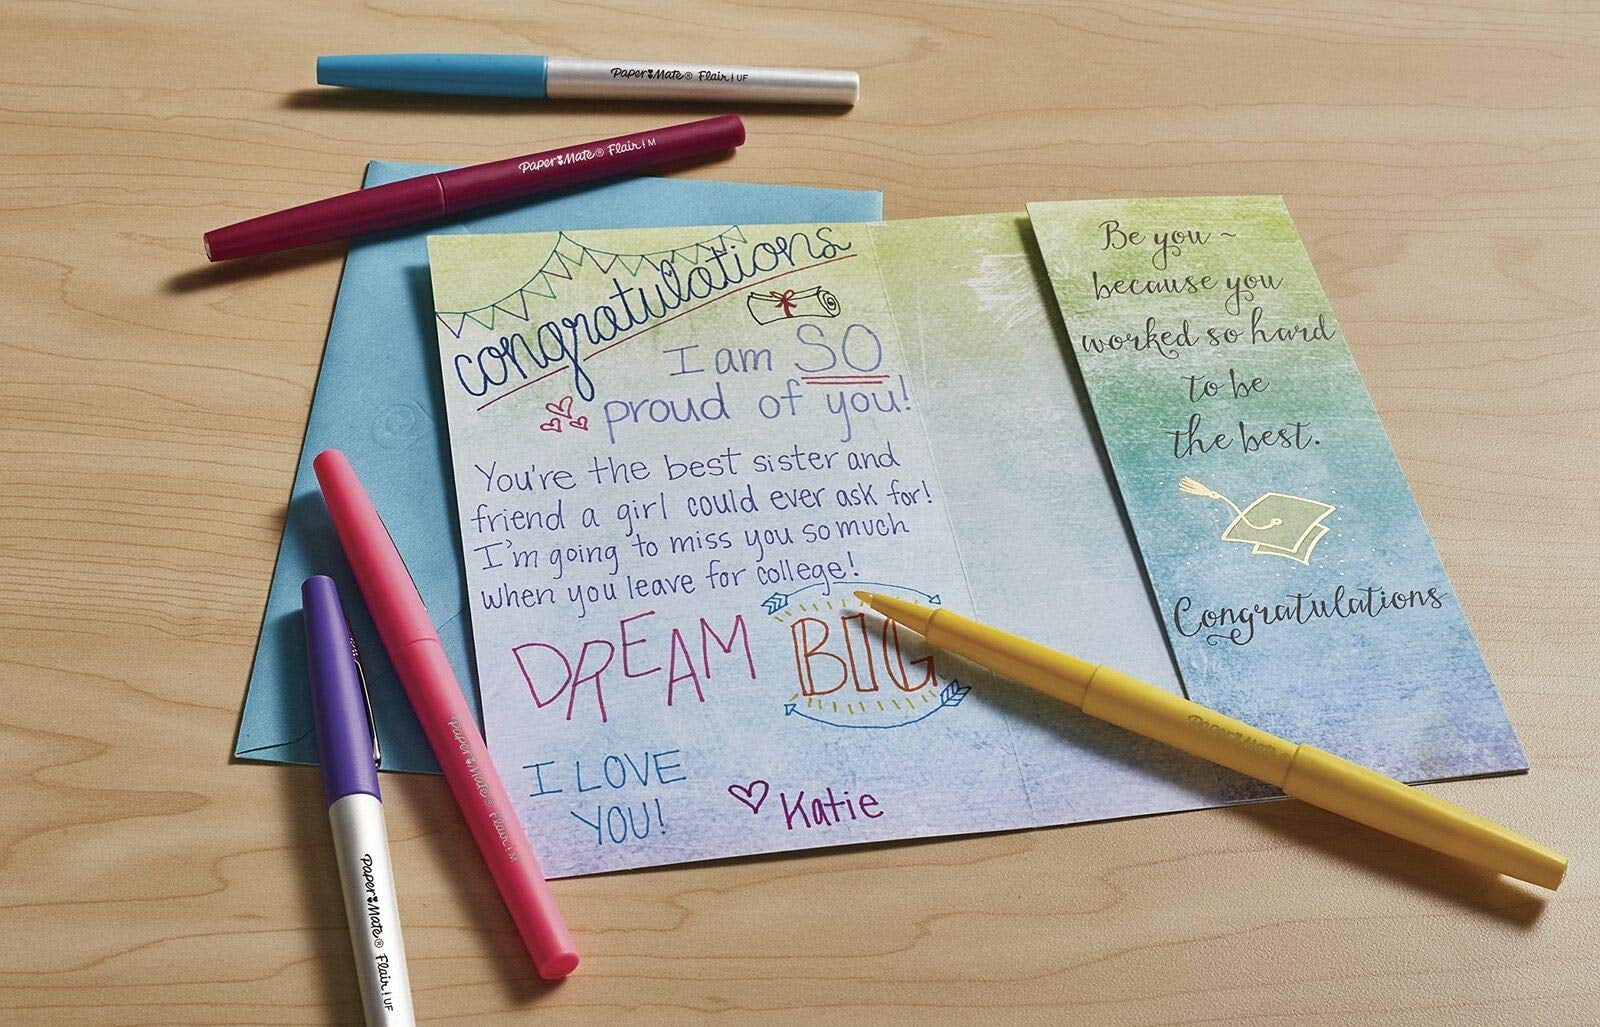 Paper Mate® Flair! UF
Paper Mate® Flair! M
congratulations
I am SO
proud of you!
You're the best sister and
friend a girl could ever ask for!
I'm going to miss you so much
when you leave for college!
DREAM BIG
I LOVE
YOU!
Katie
Be you ~
because you
worked so hard
to be
the best.
Congratulations
Paper Mate® Flair! M
Paper Mate® Flair! UF
Paper Mate® Flair!